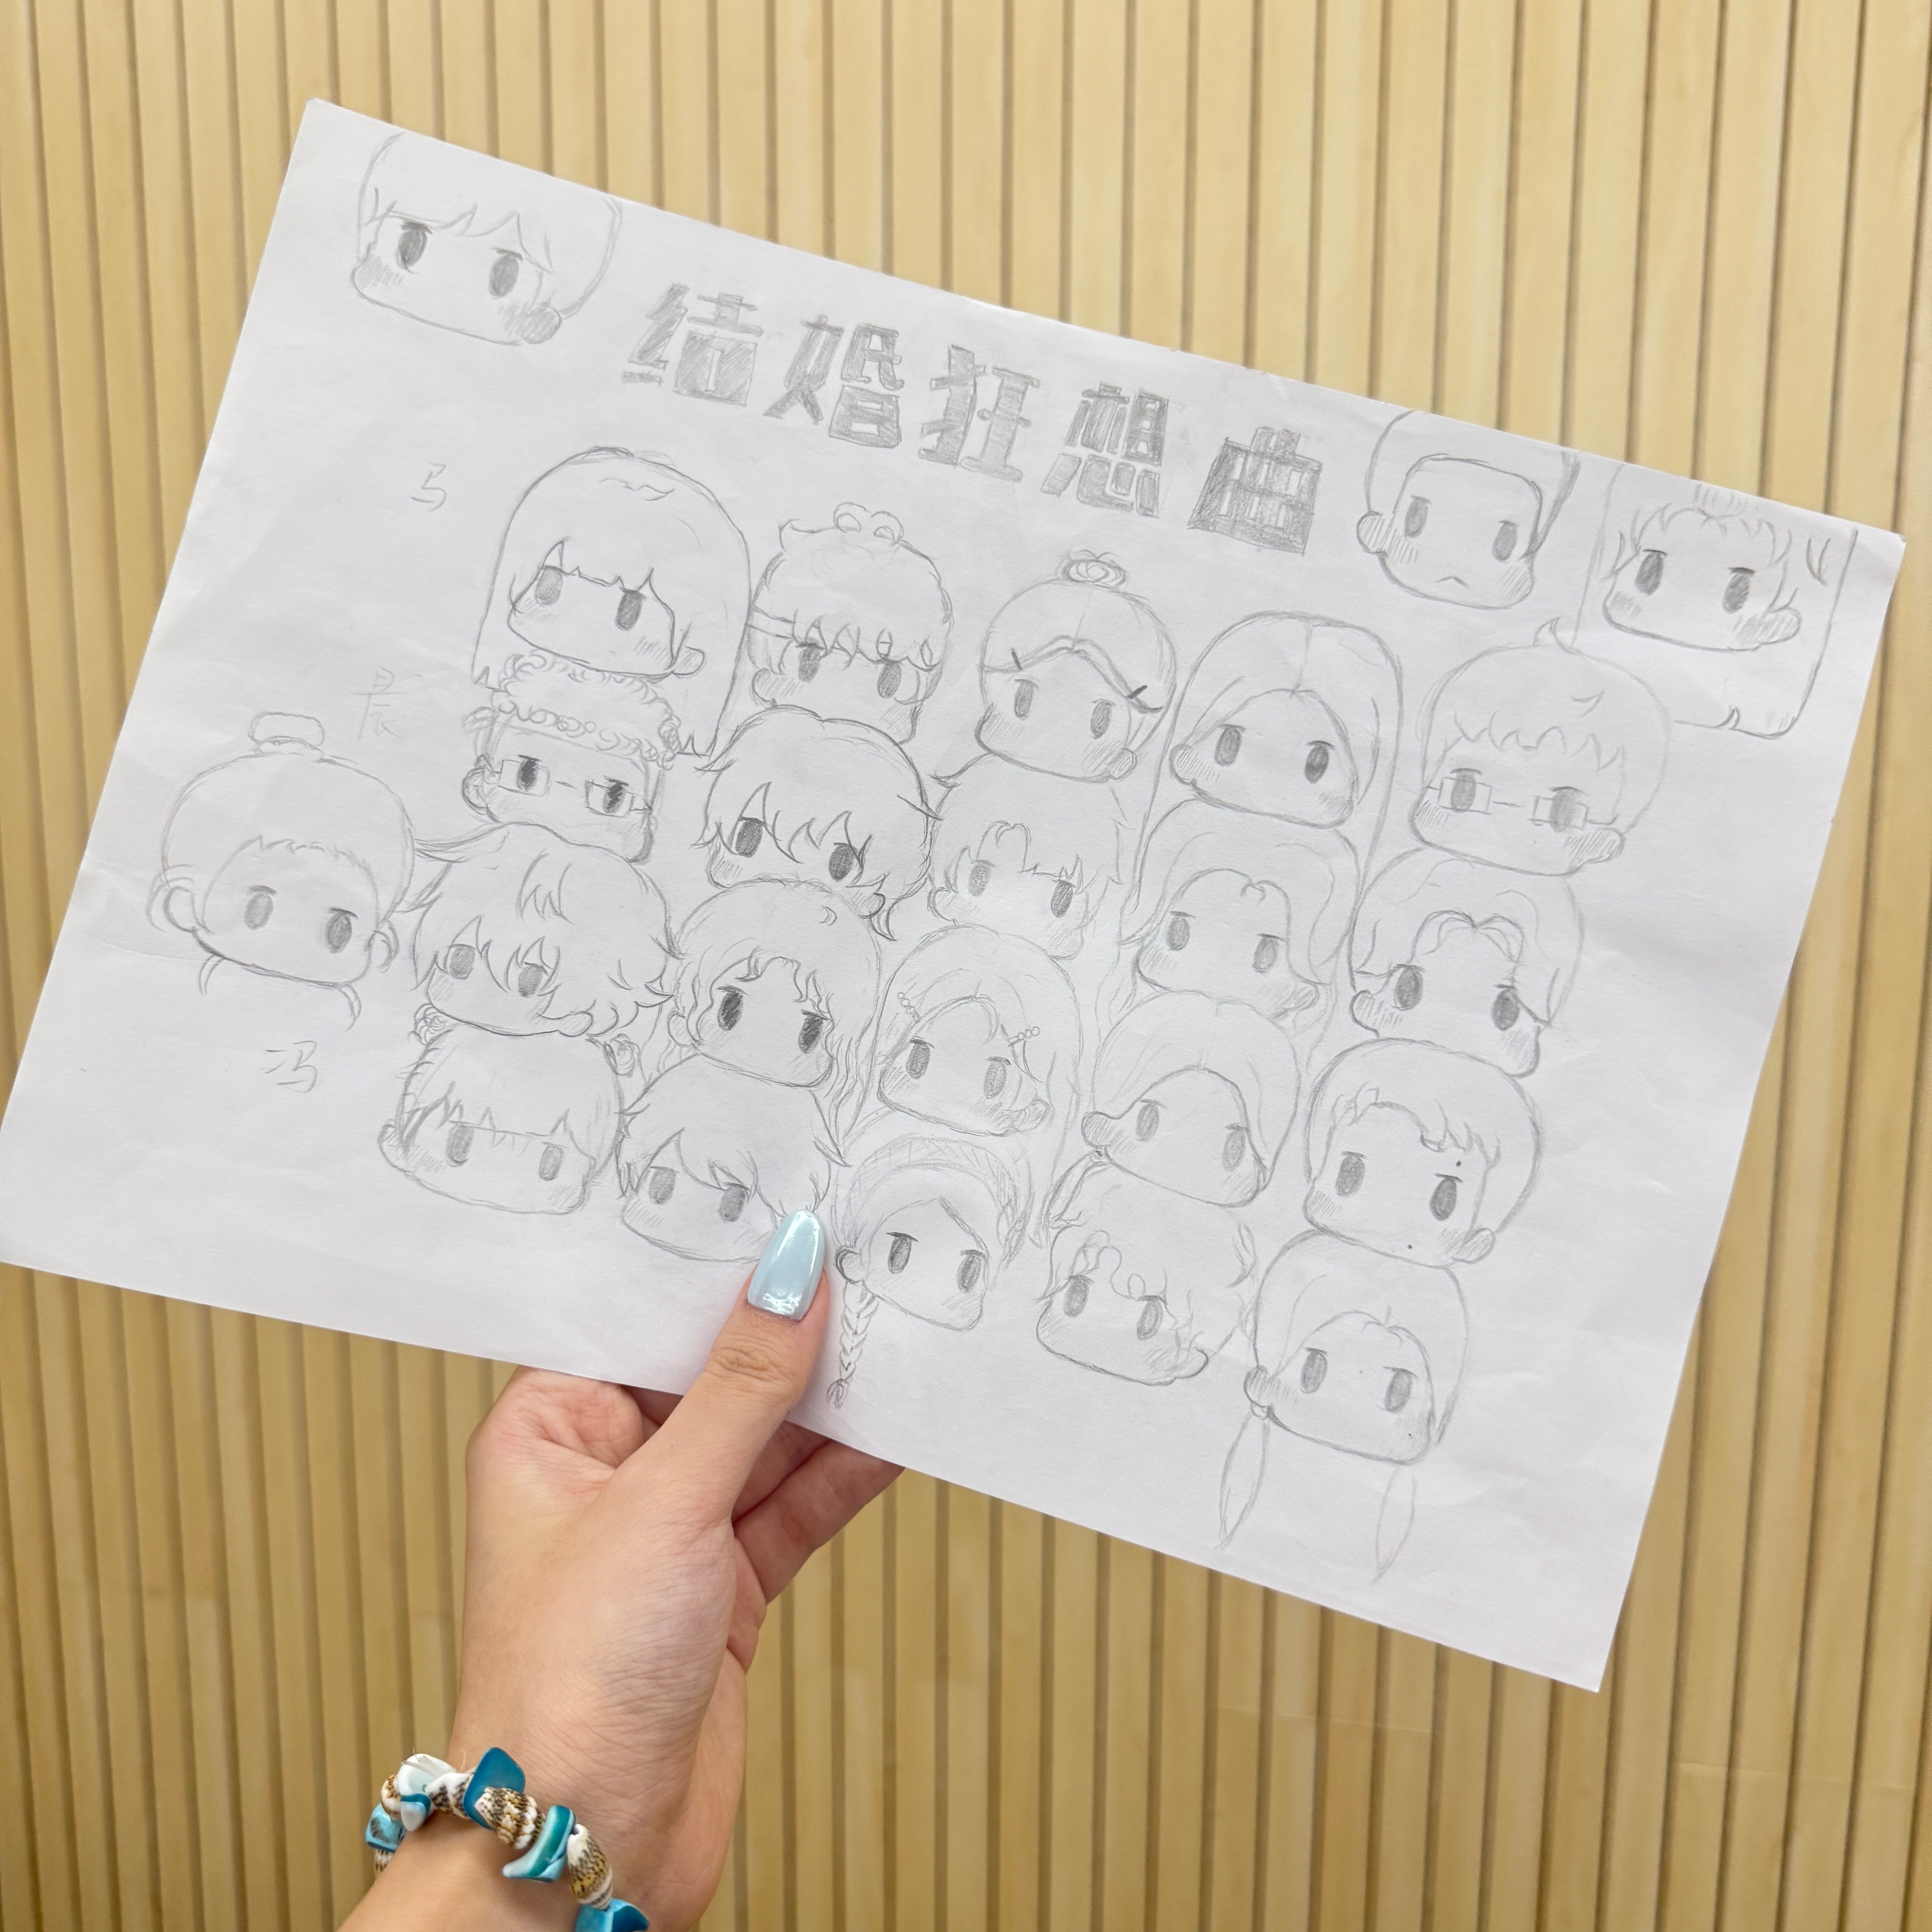 结婚狂想曲
马
晨
冯